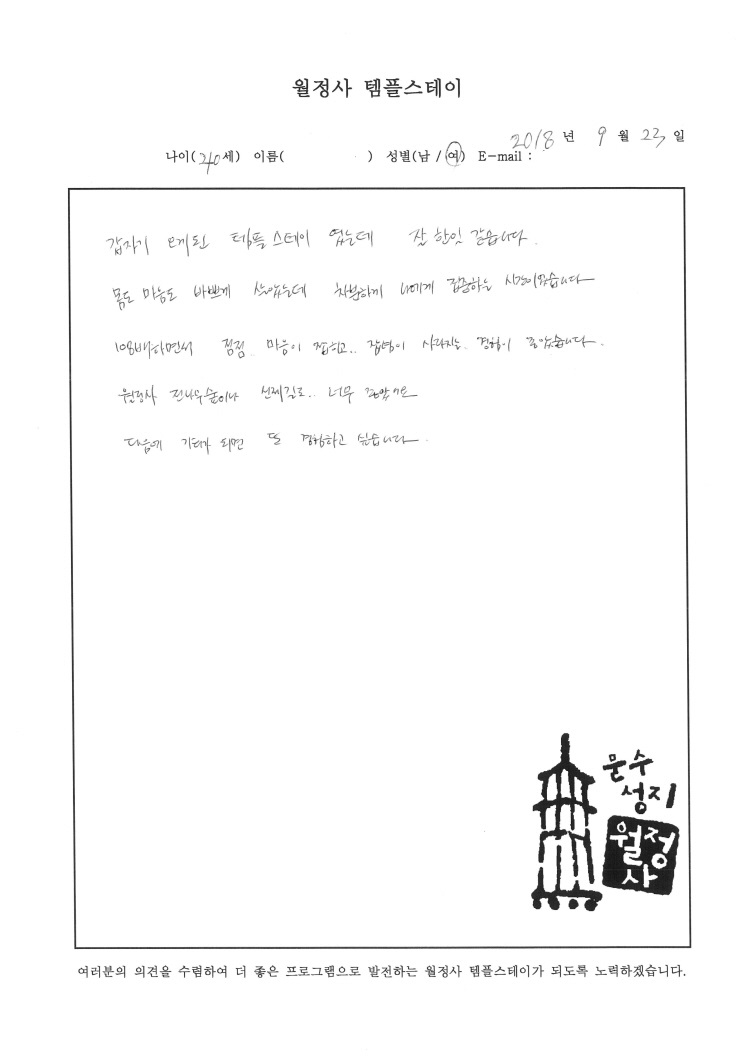 월정사 템플스테이
2018 년 9 월 23 일
나이( 40 세) 이름( ) 성별(남 / 여) E-mail :
갑자기 오게된 템플스테이 였는데 잘 한일 같습니다.
몸도 마음도 바쁘게 살았는데 차분하게 나에게 집중하는 시간이었습니다
108배하면서 점점 마음이 접히고.. 잡념이 사라지는 경험이 좋았습니다.
월정사 전나무숲이나 선재길로.. 너무 좋았어요
다음에 기회가 되면 또 경험하고 싶습니다.
문수
성지
월정
사
여러분의 의견을 수렴하여 더 좋은 프로그램으로 발전하는 월정사 템플스테이가 되도록 노력하겠습니다.